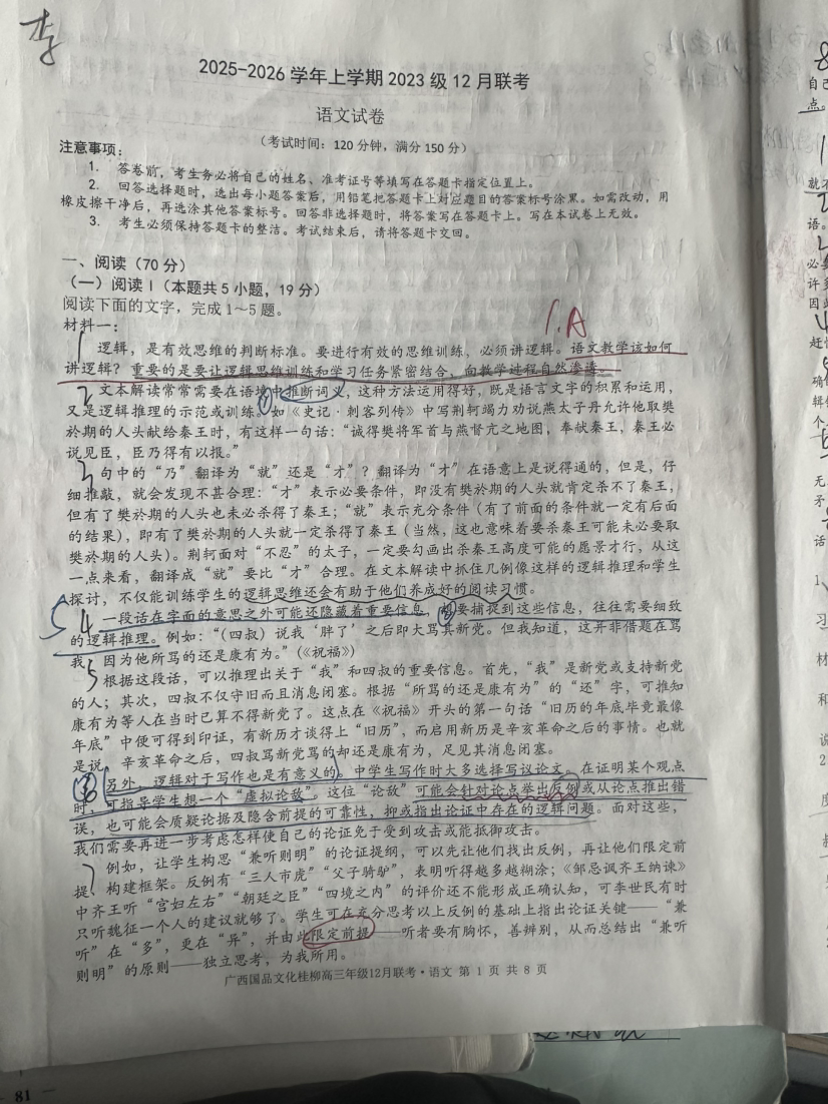 李
2025-2026 学年上学期 2023 级 12 月联考
语文试卷
(考试时间：120 分钟，满分 150 分)
注意事项：
1. 答卷前，考生务必将自己的姓名、准考证号等填写在答题卡指定位置上。
2. 回答选择题时，选出每小题答案后，用铅笔把答题卡上对应题目的答案标号涂黑。如需改动，用
橡皮擦干净后，再选涂其他答案标号。回答非选择题时，将答案写在答题卡上。写在本试卷上无效。
3. 考生必须保持答题卡的整洁。考试结束后，请将答题卡交回。
一、阅读（70 分）
（一）阅读 I（本题共 5 小题，19 分）
阅读下面的文字，完成 1～5 题。
材料一：
1.A
1 逻辑，是有效思维的判断标准。要进行有效的思维训练，必须讲逻辑。语文教学该如何
讲逻辑？重要的是要让逻辑思维训练和学习任务紧密结合，向教学进程自然渗透。
2 文本解读常常需要在语境中推断词义，这种方法运用得好，既是语言文字的积累和运用，
①
又是逻辑推理的示范或训练。如《史记·刺客列传》中写荆轲竭力劝说燕太子丹允许他取樊
於期的人头献给秦王时，有这样一句话：“诚得樊将军首与燕督亢之地图，奉献秦王，秦王必
说见臣，臣乃得有以报。”
3 句中的“乃”翻译为“就”还是“才”？翻译为“才”在语意上是说得通的，但是，仔
细推敲，就会发现不甚合理：“才”表示必要条件，即没有樊於期的人头就肯定杀不了秦王，
但有了樊於期的人头也未必杀得了秦王；“就”表示充分条件（有了前面的条件就一定有后面
的结果），即有了樊於期的人头就一定杀得了秦王（当然，这也意味着要杀秦王可能未必要取
樊於期的人头）。荆轲面对“不忍”的太子，一定要勾画出杀秦王高度可能的愿景才行，从这
一点来看，翻译成“就”要比“才”合理。在文本解读中抓住几例像这样的逻辑推理和学生
探讨，不仅能训练学生的逻辑思维还会有助于他们养成好的阅读习惯。
5 4 一段话在字面的意思之外可能还隐藏着重要信息，想要捕捉到这些信息，往往需要细致
②
的逻辑推理。例如：“（四叔）说我‘胖了’之后即大骂其新党。但我知道，这并非借题在骂
我：因为他所骂的还是康有为。”（《祝福》）
5 根据这段话，可以推理出关于“我”和四叔的重要信息。首先，“我”是新党或支持新党
的人；其次，四叔不仅守旧而且消息闭塞。根据“所骂的还是康有为”的“还”字，可推知
康有为等人在当时已算不得新党了。这点在《祝福》开头的第一句话“旧历的年底毕竟最像
年底”中便可得到印证，有新历才谈得上“旧历”，而启用新历是辛亥革命之后的事情。也就
是说，辛亥革命之后，四叔骂新党骂的却还是康有为，足见其消息闭塞。
另外，逻辑对于写作也是有意义的。中学生写作时大多选择写议论文。在证明某个观点
时，可指导学生想一个“虚拟论敌”。这位“论敌”可能会针对论点举出反例或从论点推出错
误，也可能会质疑论据及隐含前提的可靠性，抑或指出论证中存在的逻辑问题。面对这些，
我们需要再进一步考虑怎样使自己的论证免于受到攻击或能抵御攻击。
7 例如，让学生构思“兼听则明”的论证提纲，可以先让他们找出反例，再让他们限定前
提、构建框架。反例有“三人市虎”“父子骑驴”，表明听得越多越糊涂；《邹忌讽齐王纳谏》
中齐王听“宫妇左右”“朝廷之臣”“四境之内”的评价还不能形成正确认知，可李世民有时
只听魏征一个人的建议就够了。学生可在充分思考以上反例的基础上指出论证关键——“兼
听”在“多”，更在“异”，并由此限定前提——听者要有胸怀，善辨别，从而总结出“兼听
则明”的原则——独立思考，为我所用。
广西国品文化桂柳高三年级12月联考·语文 第 1 页 共 8 页
81